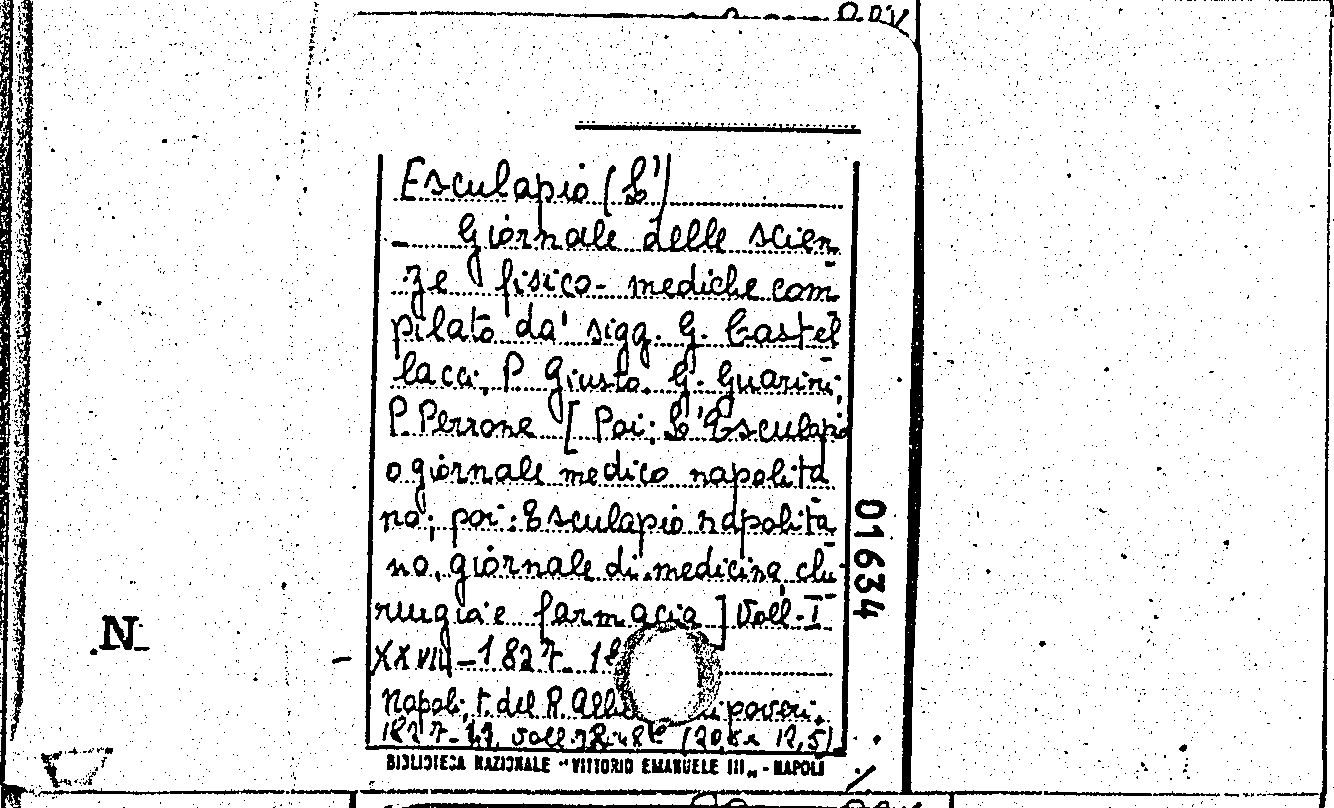 Esculapio (L')
Giornale delle scien
ze fisico-mediche com
pilato da' sigg. G. Castel
lacci, P. Giusto, G. Guarini,
P. Perrone [Poi: L'Esculapi
o giornale medico napolita
no; poi: Esculapio napolita
no, giornale di medicina, chi
rurgia e farmacia] Voll. I
XXVII - 1827-18
Napoli, t. del R. Albe poveri,
1827 (20,5 x 12,5)
BIBLIOTECA NAZIONALE "VITTORIO EMANUELE III" - NAPOLI
01634
N